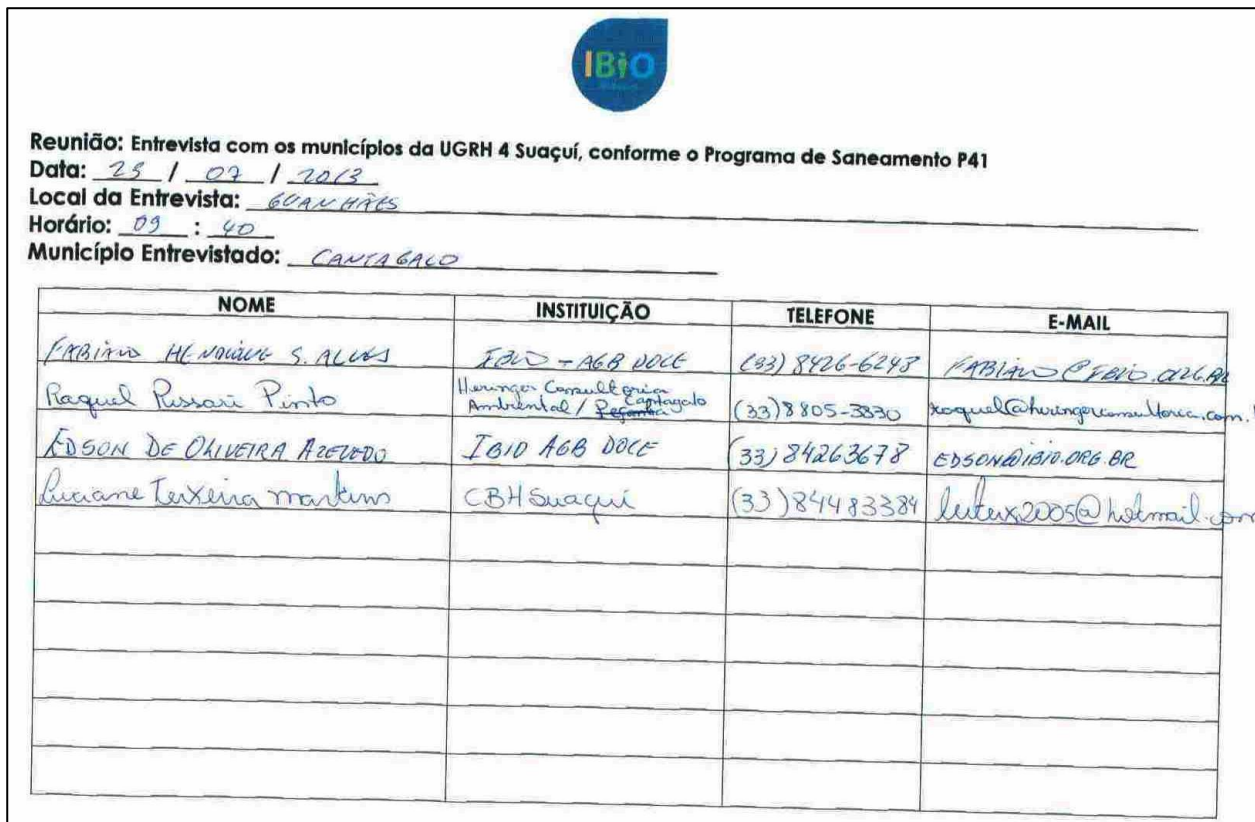 IBIO
Reunião: Entrevista com os municípios da UGRH 4 Suaçuí, conforme o Programa de Saneamento P41
Data: 25 / 07 / 2013
Local da Entrevista: GUANHÃES
Horário: 09 : 40
Município Entrevistado: CANTAGALO
NOME INSTITUIÇÃO TELEFONE E-MAIL
FABIANO HENRIQUE S. ALVES IBIO - AGB DOCE (33) 8426-6243 FABIANO@IBIO.ORG.BR
Raquel Pinto Heringer Consultoria Ambiental / Cantagalo (33) 8805-3830 raquel@heringerconsultoria.com.
EDSON DE OLIVEIRA AZEVEDO IBIO AGB DOCE (33) 84263678 EDSON@IBIO.ORG.BR
Luciane Teixeira martins CBH Suaçuí (33) 84483384 luteix2005@hotmail.com